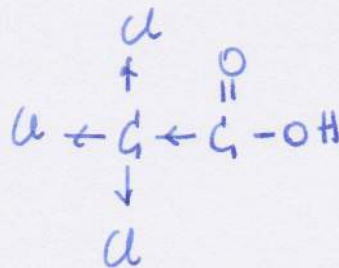 Cl
O
Cl ← C ← C - OH
Cl